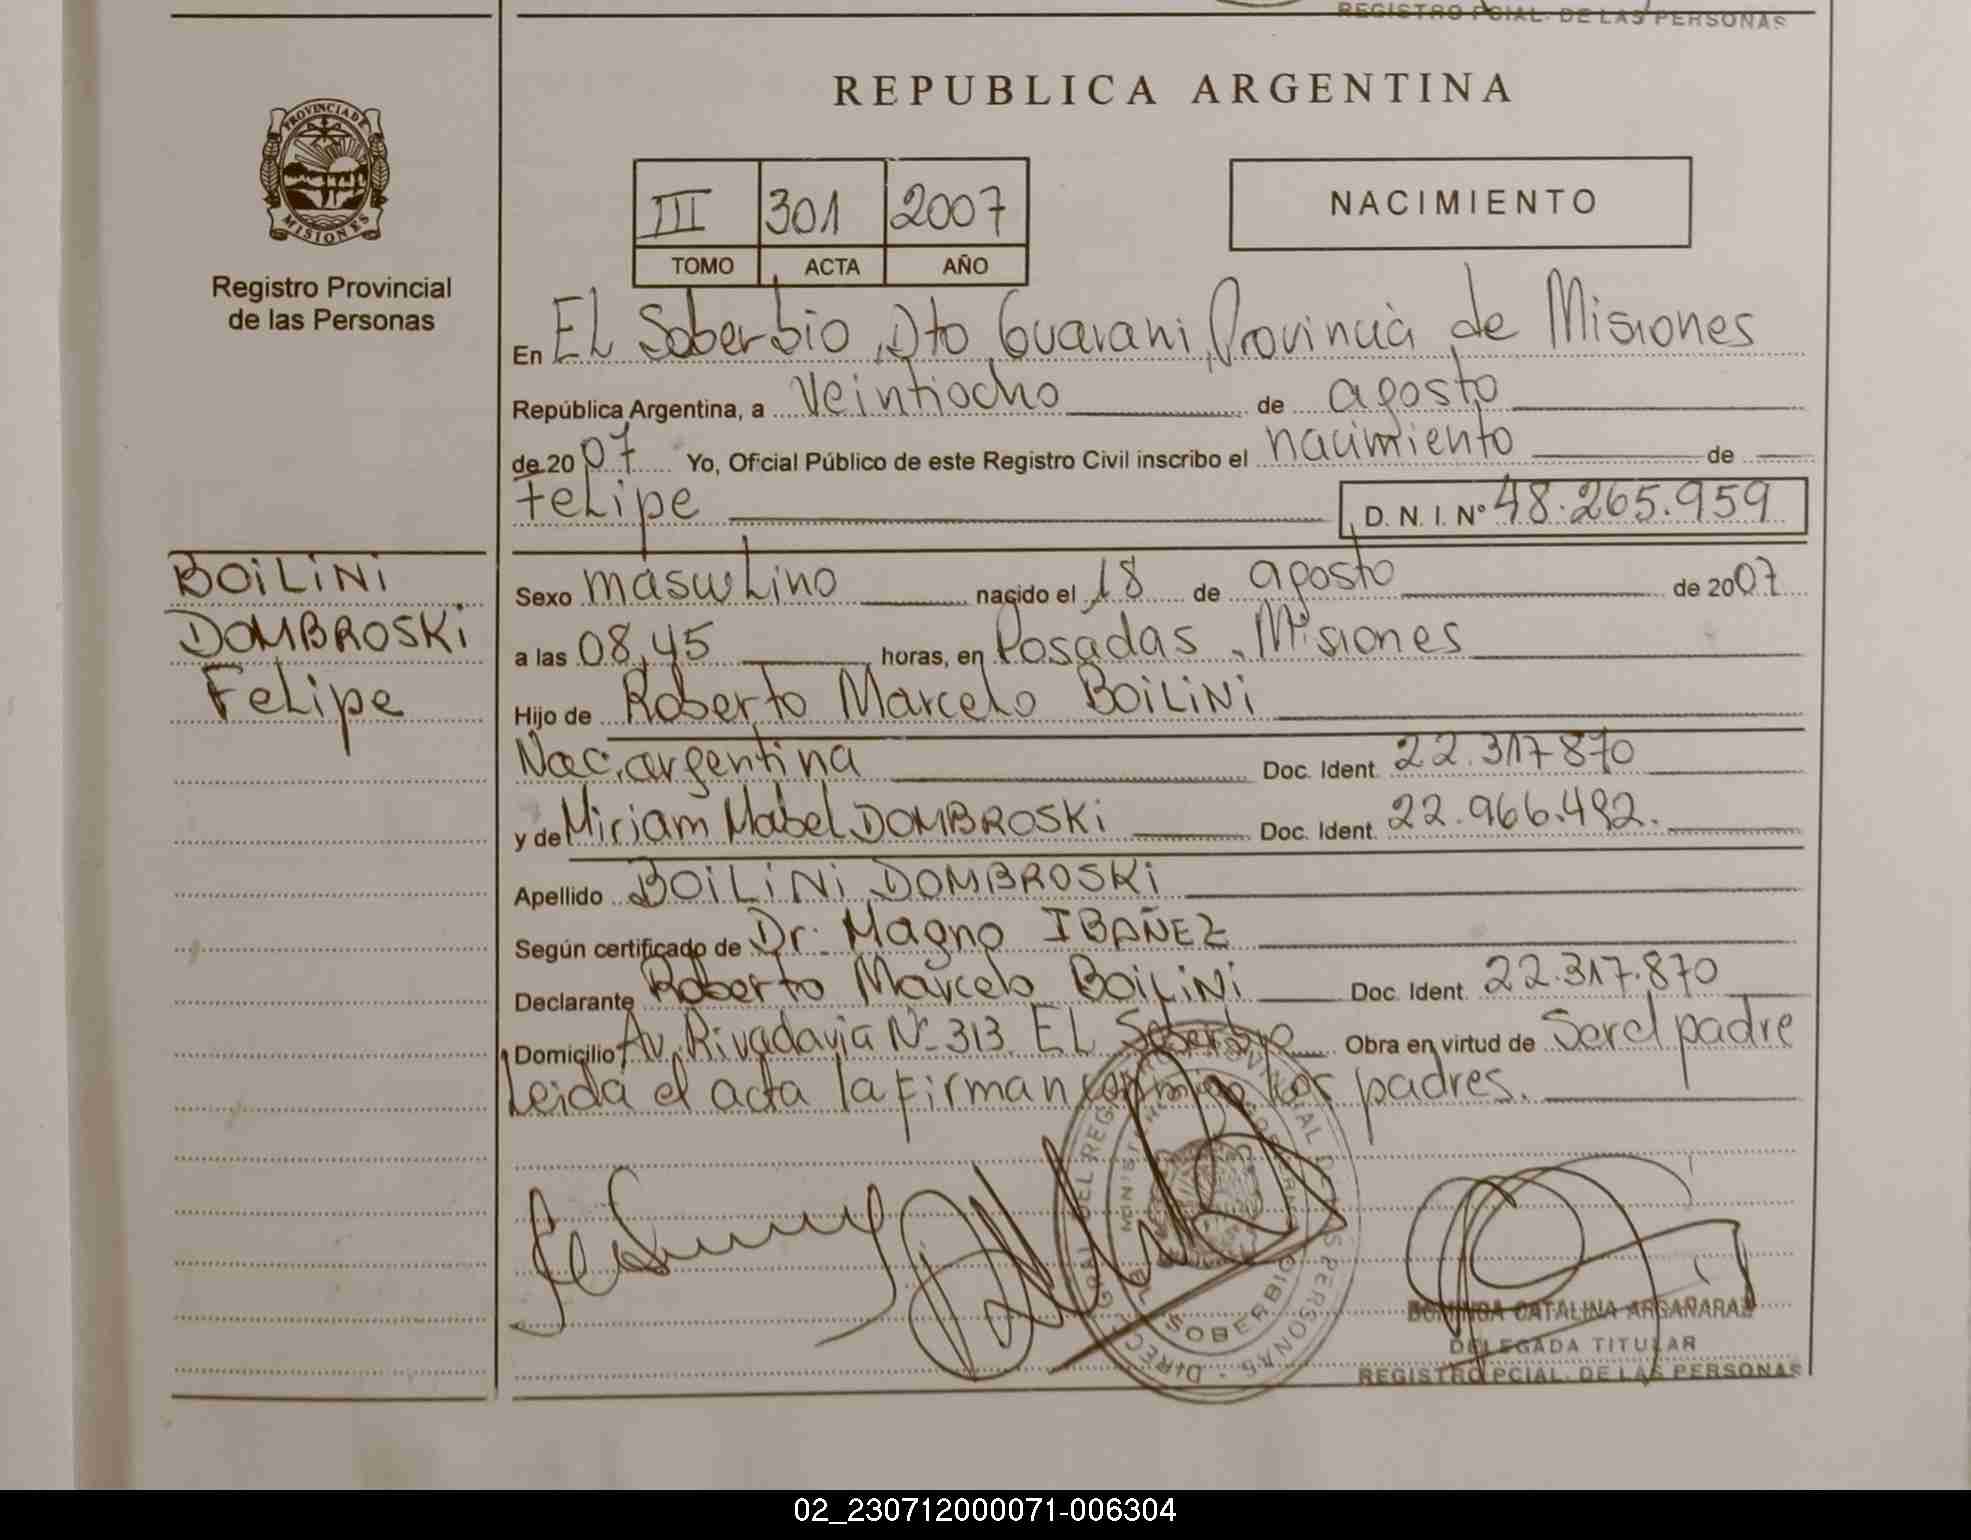 REGISTRO PCIAL. DE LAS PERSONAS
REPUBLICA ARGENTINA
PROVINCIA DE
MISIONES
Registro Provincial
de las Personas
III 301 2007
TOMO ACTA AÑO
NACIMIENTO
En EL Soberbio, Dto Guarani, Provincia de Misiones
República Argentina, a veintiocho de agosto
de 2007 Yo, Oficial Público de este Registro Civil inscribo el nacimiento de
Felipe D. N. I. Nº 48.265.959
BOiLiNi
DOMBROSKi
FeLipe
Sexo masculino nacido el 18 de agosto de 2007
a las 08,45 horas, en Posadas, Misiones
Hijo de Roberto Marcelo BOiLiNi
Nac. argentina Doc. Ident. 22.317.870
y de Miriam Mabel DOMBROSKi Doc. Ident. 22.966.492.
Apellido BOiLiNi DOMBROSKi
Según certificado de Dr. Magno IBAÑEZ
Declarante Roberto Marcelo BOiLiNi Doc. Ident. 22.317.870
Domicilio Av. Rivadavia Nº 313. EL Soberbio Obra en virtud de Ser el padre
Leida el acta la firman conmigo los padres.
SOBERBIO
DOMINGA CATALINA ARGAÑARAZ
DELEGADA TITULAR
REGISTRO PCIAL. DE LAS PERSONAS
02_230712000071-006304